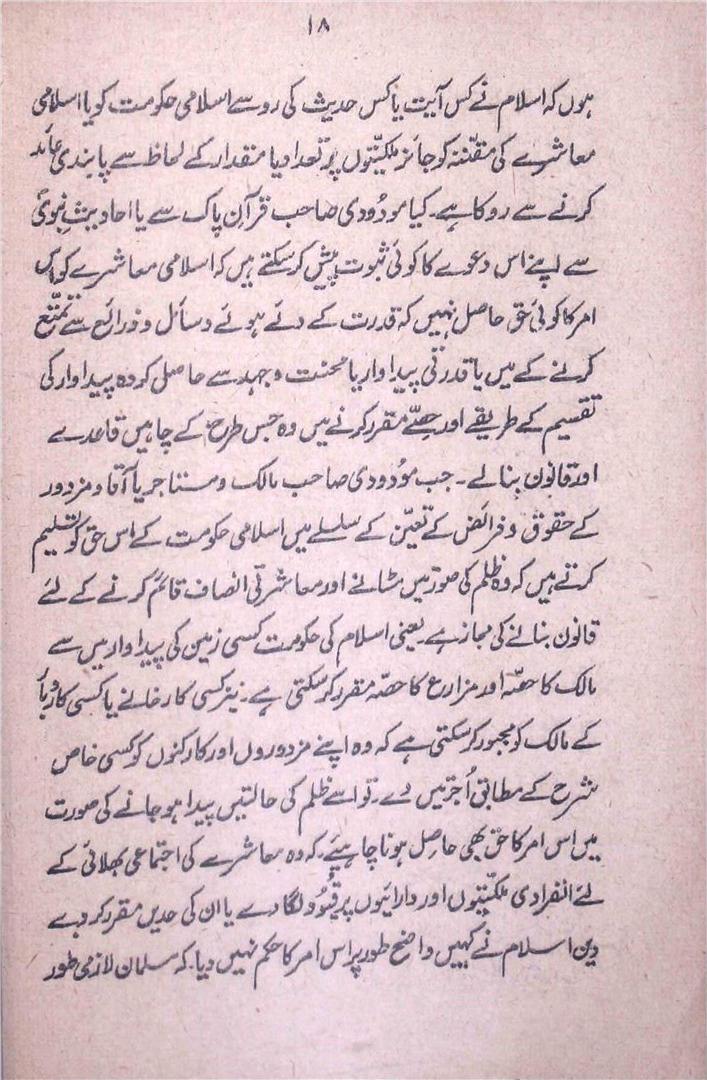 ۱۸
ہوں کہ اسلام نے کس آیت یا کس حدیث کی رو سے اسلامی حکومت کو یا اسلامی
معاشرے کی مقنّنہ کو جائز ملکیّتوں پر تعداد یا مقدار کے لحاظ سے پابندی عائد
کرنے سے روکا ہے۔ کیا مودُودی صاحب قرآنِ پاک سے یا احادیثِ نبویؐ
سے اپنے اس دعوے کا کوئی ثبوت پیش کر سکتے ہیں کہ اسلامی معاشرے کو اس
امر کا کوئی حق حاصل نہیں کہ قدرت کے دئے ہوئے وسائل و ذرائع سے تمتّع
کرنے کے ہیں یا قدرتی پیداوار یا محنت و جہد سے حاصل کردہ پیداوار کی
تقسیم کے طریقے اور حِصّے مقرر کرنے میں وہ جس طرح کے چاہیں قاعدے
اور قانون بنالے۔ جب مودُودی صاحب مالک و مستاجر یا آقا و مزدور
کے حقوق و فرائض کے تعیّن کے سلسلے میں اسلامی حکومت کے اس حق کو تسلیم
کرتے ہیں کہ وہ ظلم کی صورتیں مٹانے اور معاشرتی انصاف قائم کرنے کے لئے
قانون بنانے کی مجاز ہے۔ یعنی اسلام کی حکومت کسی زمین کی پیداوار میں سے
مالک کا حصّہ اور مزارع کا حصّہ مقرر کر سکتی ہے۔ نیز کسی کارخانے یا کسی کاروبار
کے مالک کو مجبور کر سکتی ہے کہ وہ اپنے مزدوروں اور کارکنوں کو کسی خاص
شرح کے مطابق اُجرتیں دے۔ تو اسے ظلم کی حالتیں پیدا ہو جانے کی صورت
میں اس امر کا حق بھی حاصل ہونا چاہیئے۔ کہ وہ معاشرے کی اجتماعی بھلائی کے
لئے انفرادی ملکیّتوں اور دارائیوں پر قُیُود لگا دے یا ان کی حدیں مقرر کر دے
دین اسلام نے کہیں واضح طور پر اس امر کا حکم نہیں دیا۔ کہ مسلمان لازمی طور